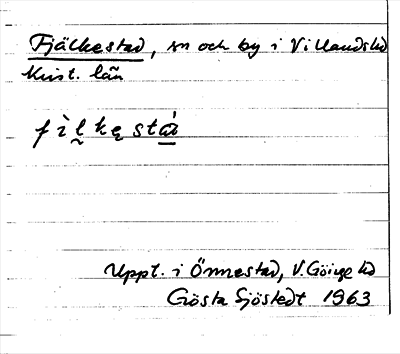 Fjälkestad, sn och by i Villands hd
Krist. län
fìlkęstá
Uppt. i Önnestad, V. Göinge hd
Gösta Sjöstedt 1963